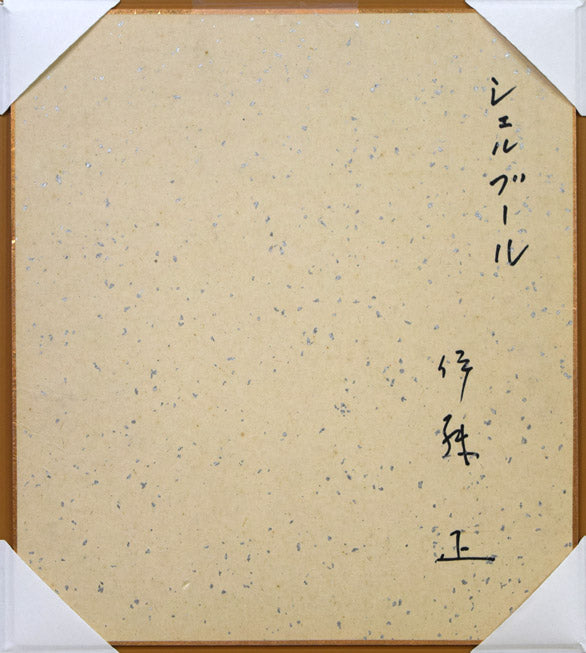 シェルブール
伊 正